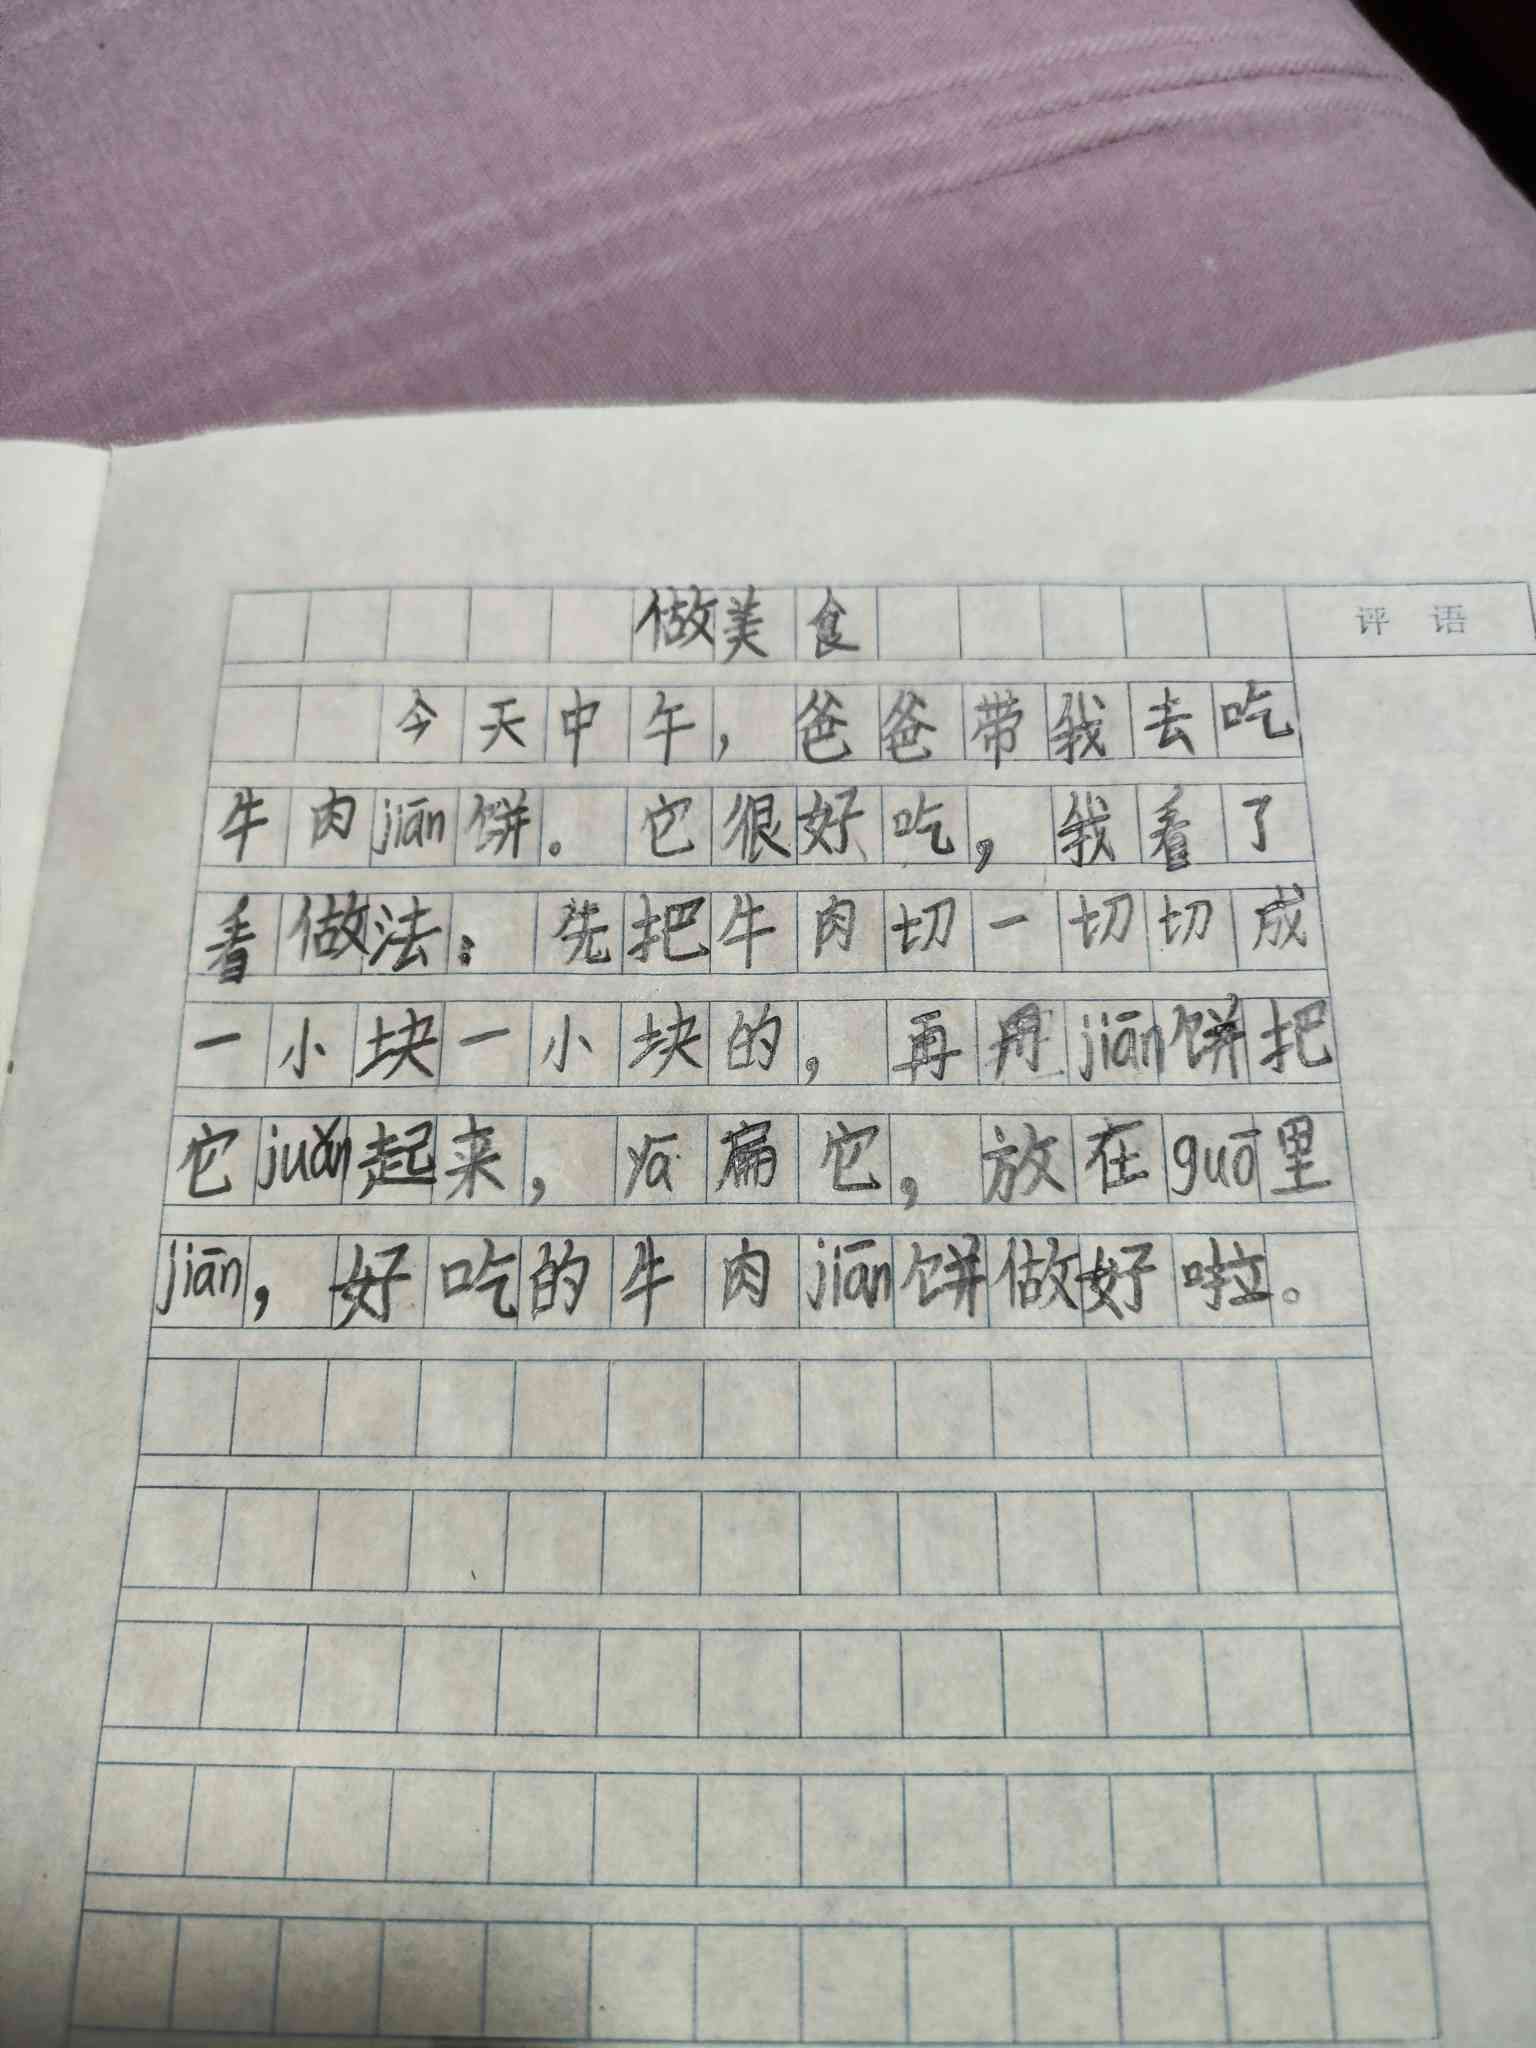 做美食
评 语
今天中午，爸爸带我去吃
牛肉jiān饼。它很好吃，我看了
看做法：先把牛肉切一切切成
一小块一小块的，再用jiān饼把
它juǎn起来，yā扁它，放在guō里
jiān，好吃的牛肉jiān饼做好啦。